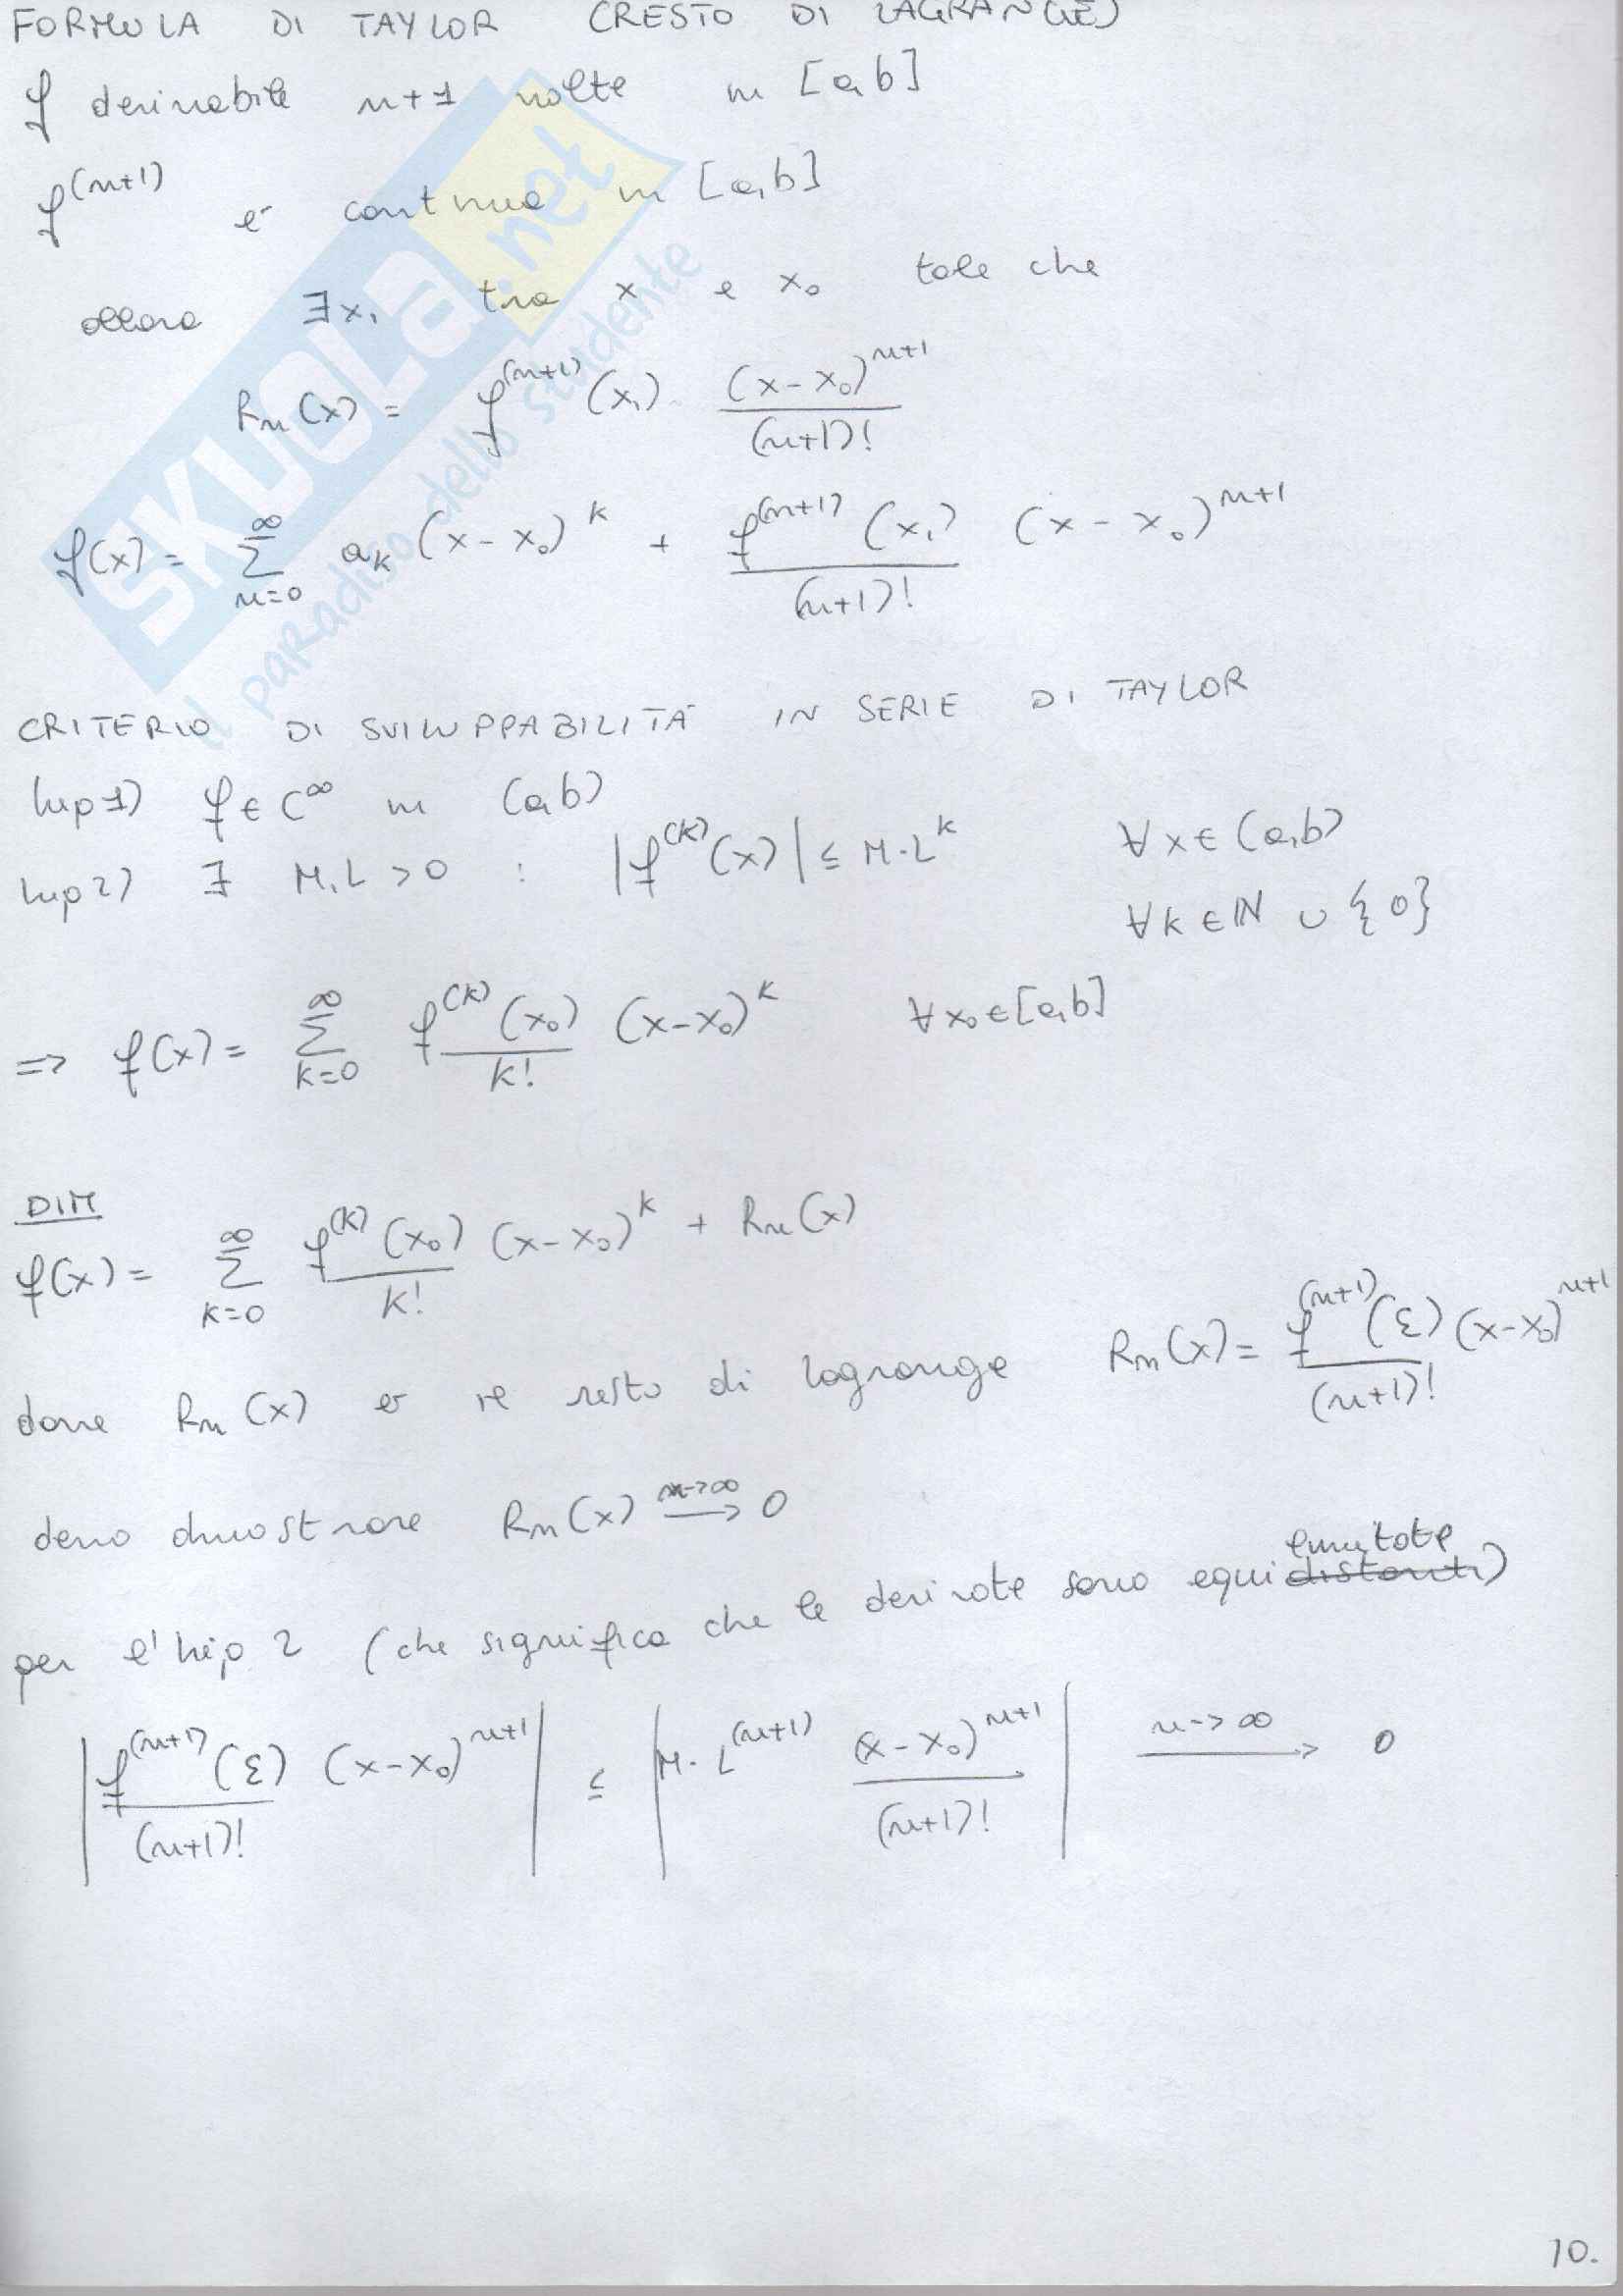 FORMULA DI TAYLOR (RESTO DI LAGRANGE)
f derivabile n+1 volte in [a,b]
f^(n+1) è continua in [a,b]
allora ∃x₁ tra x e x₀ tale che
Rₙ(x) = f^(n+1)(x₁) (x-x₀)^(n+1) / (n+1)!
f(x) = Σ_{n=0}^{∞} a_k (x-x₀)^k + f^(n+1)(x₁) / (n+1)! (x-x₀)^(n+1)
CRITERIO DI SVILUPPABILITÀ IN SERIE DI TAYLOR
hip 1) f ∈ C^∞ in (a,b)
hip 2) ∃ M,L >0 : |f^(k)(x)| ≤ M·L^k ∀x∈(a,b)
∀k∈ℕ ∪ {0}
=> f(x) = Σ_{k=0}^{∞} f^(k)(x₀) / k! (x-x₀)^k ∀x₀∈[a,b]
DIM
f(x) = Σ_{k=0}^{∞} f^(k)(x₀) / k! (x-x₀)^k + Rₙ(x)
dove Rₙ(x) è il resto di lagrange Rₙ(x) = f^(n+1)(ε) / (n+1)! (x-x₀)^(n+1)
devo dimostrare Rₙ(x) → 0 n->∞
per l'hip 2 (che significa che le derivate sono equidistanti limitate)
|f^(n+1)(ε) / (n+1)! (x-x₀)^(n+1)| ≤ |M·L^(n+1) (x-x₀)^(n+1) / (n+1)!| → 0 n->∞
10.
SKUOLA.net
il paradiso dello studente